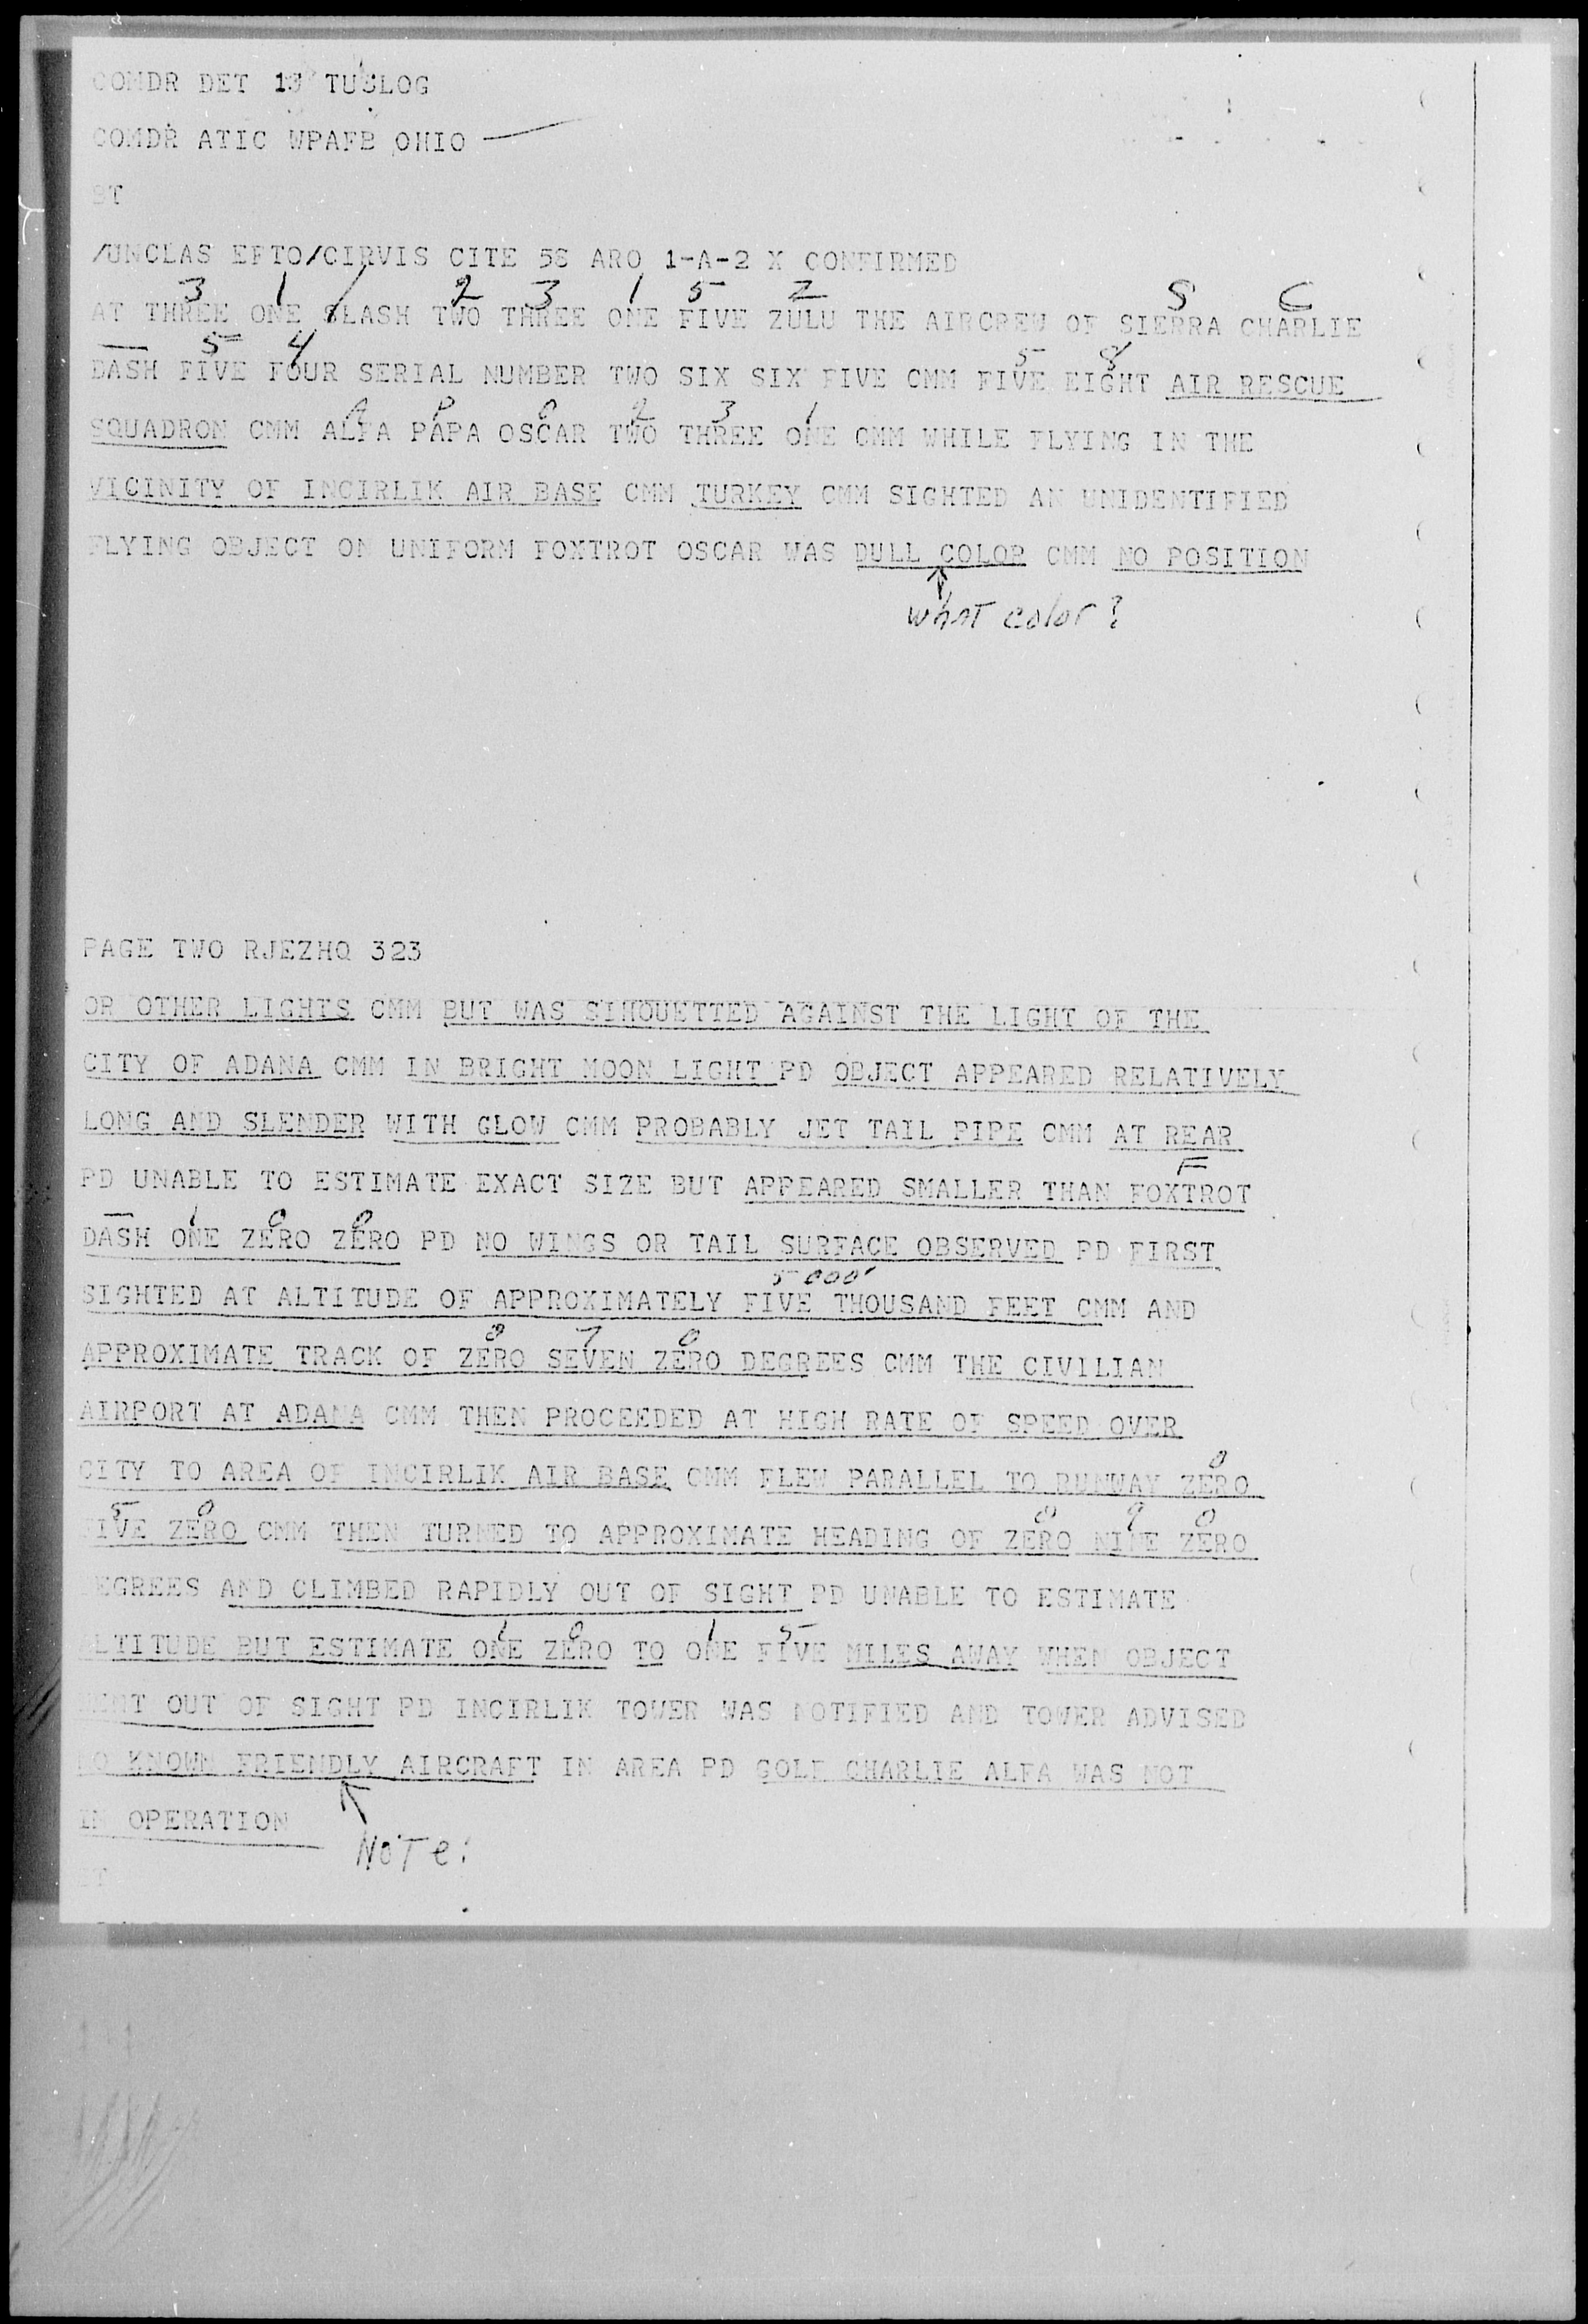 COMDR DET 13 TUSLOG
COMDR ATIC WPAFB OHIO —
BT
/UNCLAS EFTO/CIRVIS CITE 58 ARO 1-A-2 X CONFIRMED
3 1 / 2 3 1 5 Z S C
AT THREE ONE SLASH TWO THREE ONE FIVE ZULU THE AIRCREW OF SIERRA CHARLIE
— 5 4 5 8
DASH FIVE FOUR SERIAL NUMBER TWO SIX SIX FIVE CMM FIVE EIGHT AIR RESCUE
A P O 2 3 1
SQUADRON CMM ALFA PAPA OSCAR TWO THREE ONE CMM WHILE FLYING IN THE
VICINITY OF INCIRLIK AIR BASE CMM TURKEY CMM SIGHTED AN UNIDENTIFIED
FLYING OBJECT ON UNIFORM FOXTROT OSCAR WAS DULL COLOR CMM NO POSITION
what color?
PAGE TWO RJEZHQ 323
OR OTHER LIGHTS CMM BUT WAS SIHOUETTED AGAINST THE LIGHT OF THE
CITY OF ADANA CMM IN BRIGHT MOON LIGHT PD OBJECT APPEARED RELATIVELY
LONG AND SLENDER WITH GLOW CMM PROBABLY JET TAIL PIPE CMM AT REAR
F
PD UNABLE TO ESTIMATE EXACT SIZE BUT APPEARED SMALLER THAN FOXTROT
— 1 0 0
DASH ONE ZERO ZERO PD NO WINGS OR TAIL SURFACE OBSERVED PD FIRST
5000'
SIGHTED AT ALTITUDE OF APPROXIMATELY FIVE THOUSAND FEET CMM AND
0 7 0
APPROXIMATE TRACK OF ZERO SEVEN ZERO DEGREES CMM THE CIVILIAN
AIRPORT AT ADANA CMM THEN PROCEEDED AT HIGH RATE OF SPEED OVER
0
CITY TO AREA OF INCIRLIK AIR BASE CMM FLEW PARALLEL TO RUNWAY ZERO
5 0 0 9 0
FIVE ZERO CMM THEN TURNED TO APPROXIMATE HEADING OF ZERO NINE ZERO
DEGREES AND CLIMBED RAPIDLY OUT OF SIGHT PD UNABLE TO ESTIMATE
1 0 1 5
ALTITUDE BUT ESTIMATE ONE ZERO TO ONE FIVE MILES AWAY WHEN OBJECT
WENT OUT OF SIGHT PD INCIRLIK TOWER WAS NOTIFIED AND TOWER ADVISED
NO KNOWN FRIENDLY AIRCRAFT IN AREA PD GOLF CHARLIE ALFA WAS NOT
IN OPERATION
NoTe:
BT